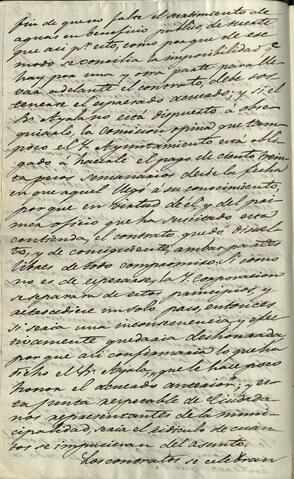 fin de que no falte el surtimiento de
aguas en beneficio publico, de suerte
que asi pr esto, como porque de ese
modo se concilia la imposibilidad q.e
hay por una y otra parte para lle-
var adelante el contrato, debe sos-
tenerse el espresado acuerdo; y si el
Sr. Ayala no está dispuesto á obse-
quiarlo, la comision opina que tam-
poco el Y. Ayuntamiento está obli-
gado á hacerle el pago de ciento treinta
pesos semanarios desde la fecha
en que aquel llegó á su conocimiento,
porque en virtud de él, y del pri-
mer oficio que ha suscitado esta
contienda, el contrato quedó disuel-
to, y de consiguiente, ambas partes
libres de todo compromiso. Si como
no es de esperarse, la Y. Corporacion
se separara de estos principios, y
retrocediese un solo paso, entonces
si seria una inconsecuencia, y efec-
tivamente quedaria deshonrada
porque asi confirmaria lo que ha
dicho el Sr. Ayala, que le hace poco
honor el acuerdo anterior; y es-
ta junta respetable de Ciudada-
nos representantes de la muni-
cipalidad, seria el ridiculo de cuan-
tos se impusieran del asunto.
Los contratos se celebran